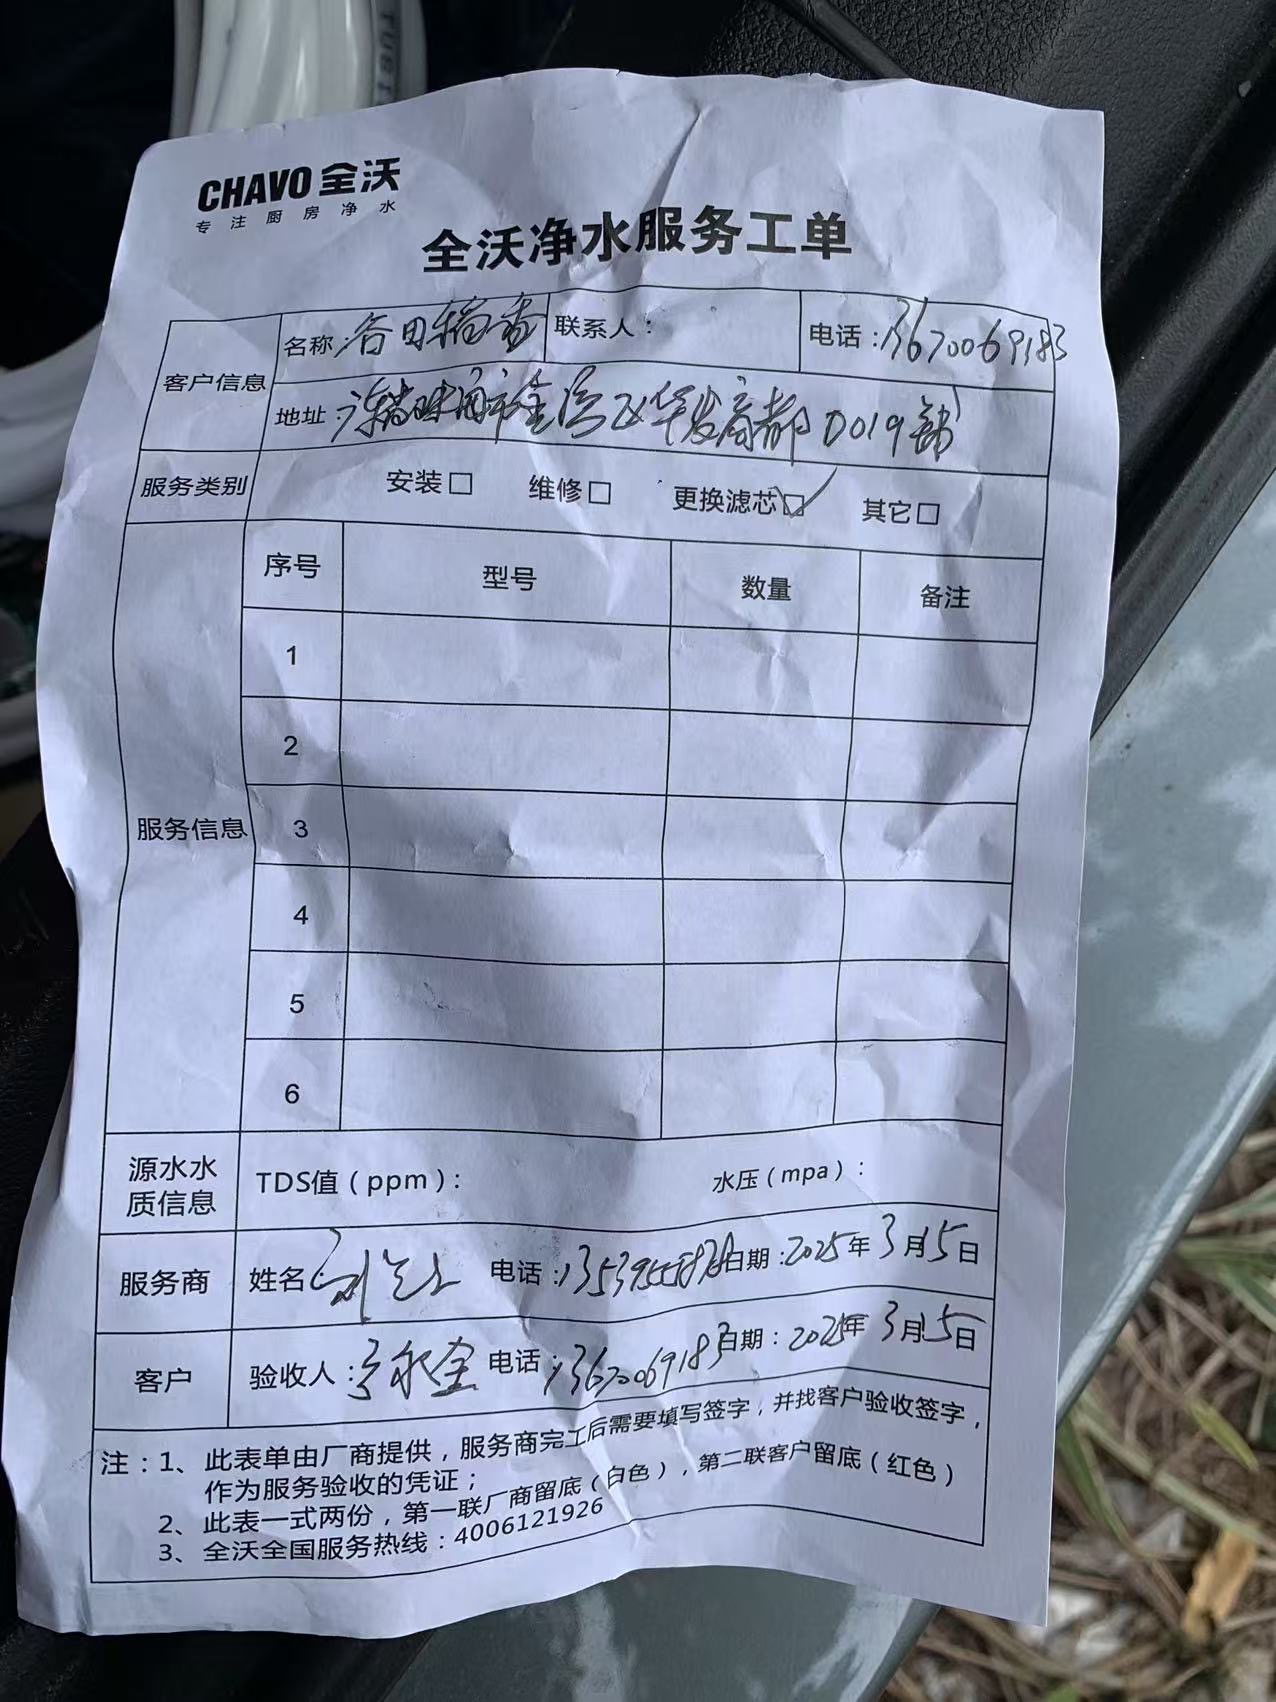 TUS
CHAVO 全沃
专注厨房净水
全沃净水服务工单
客户信息
名称：谷田稻香 联系人： 电话：13670069183
地址：珠海市金湾区华发商都D019铺
服务类别 安装□ 维修□ 更换滤芯☑ 其它□
服务信息
序号 型号 数量 备注
1
2
3
4
5
6
源水水质信息 TDS值（ppm）： 水压（mpa）：
服务商 姓名： 电话： 日期：2025年3月15日
客户 验收人： 电话：13670069183 日期：2025年3月15日
注：1、此表单由厂商提供，服务商完工后需要填写签字，并找客户验收签字，
作为服务验收的凭证；
2、此表一式两份，第一联厂商留底（白色），第二联客户留底（红色）
3、全沃全国服务热线：4006121926